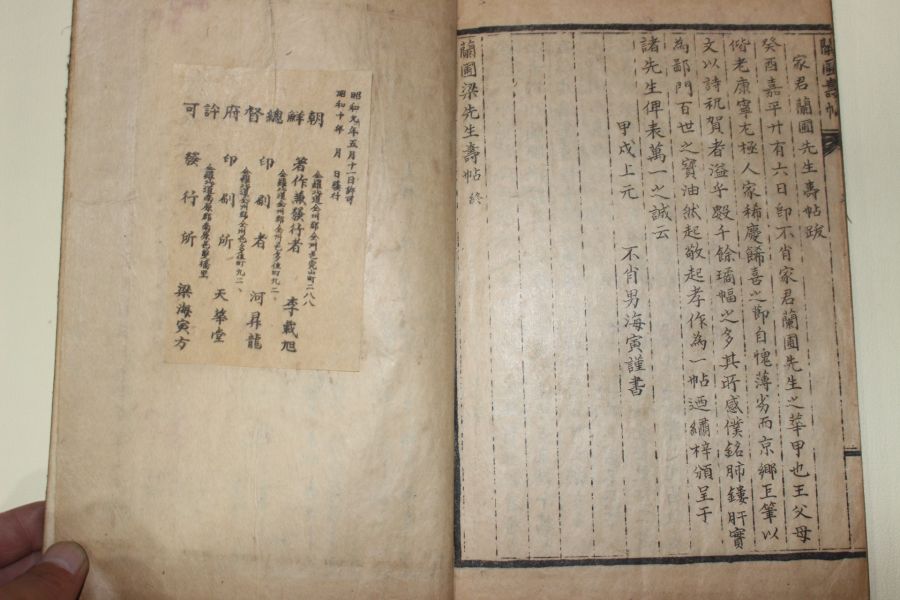 蘭圃壽帖
家君蘭圃先生壽帖跋
癸酉嘉平廿有六日卽不肖家君蘭圃先生之華甲也王父母
偕老康寧尤極人家稀慶餙喜之節自愧薄劣而京鄉巨筆以
文以詩祝賀者溢乎數千餘璚幅之多其所感僕銘肺鏤肝實
為鄙門百世之寶油然起敬起孝作為一帖迺繡梓頒呈于
諸先生俾表萬一之誠云
甲戌上元 不肖男海寅謹書
蘭圃梁先生壽帖 終
昭和九年五月十一日許可
昭和十年 月 日發行
朝鮮總督府許可
全羅北道全州郡全州邑完山町二八八
著作兼發行者 李載旭
全羅北道全州郡全州邑多佳町九二、
印刷者 河昇龍
全羅北道全州郡全州邑多佳町九二、
印刷所 天華堂
全羅北道南原郡南原邑雙橋里
發行所 梁海寅方